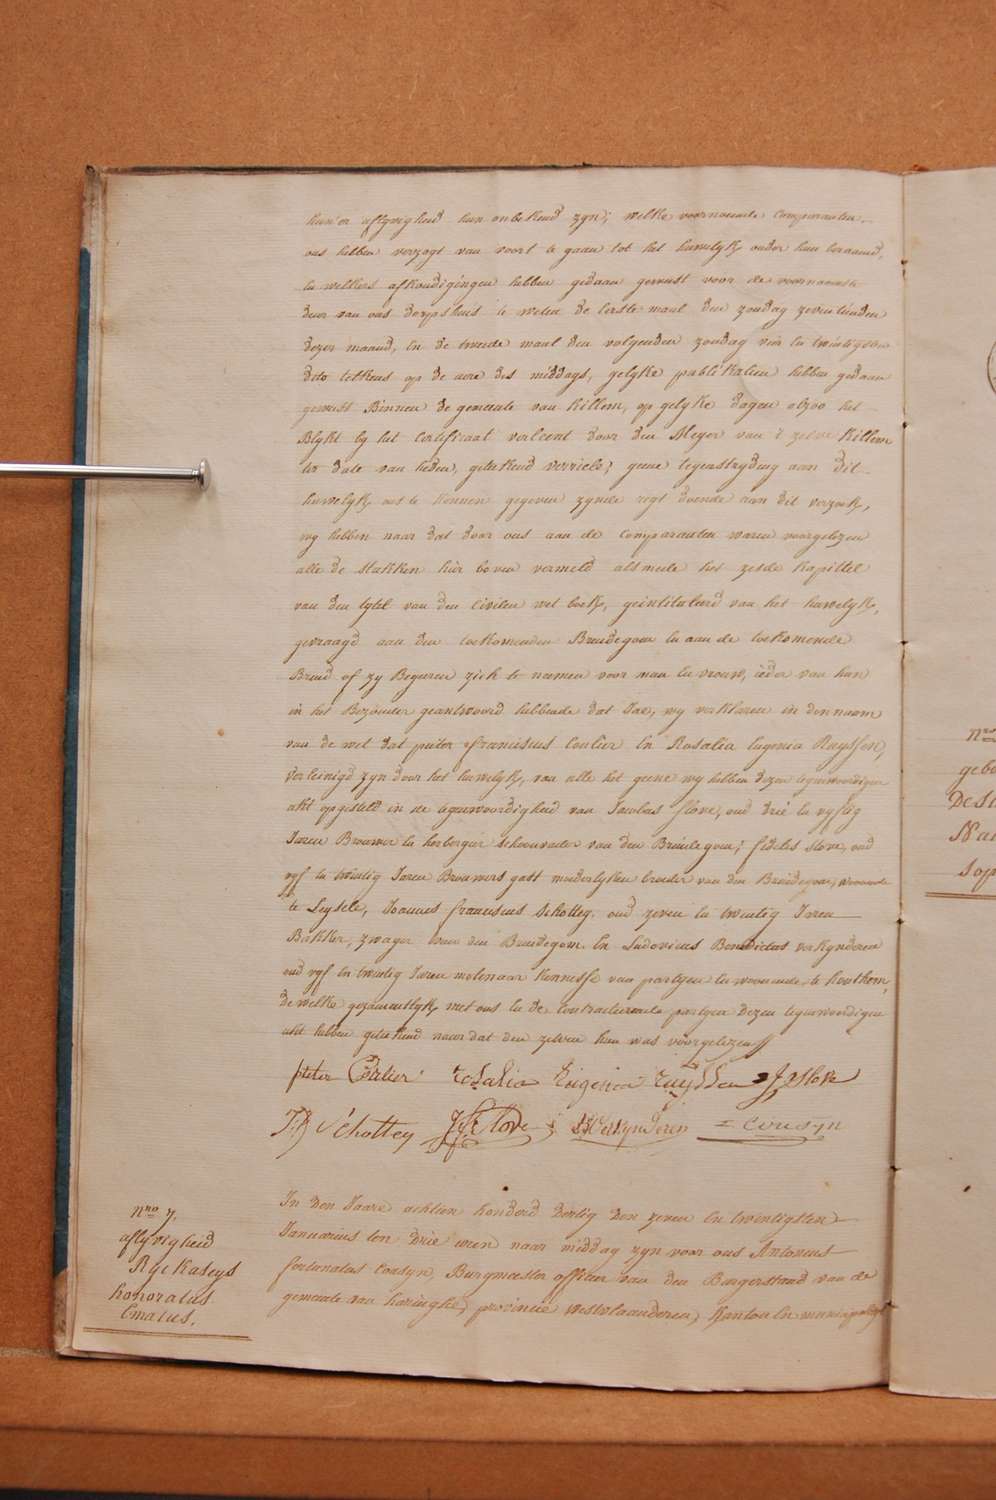 hun'er aflyvigheid hun onbekend zyn; welke voornoemde comparanten
ons hebben verzogt van voort te gaan tot het huwelyk onder hun beraamd,
en welkers afkondigingen hebben gedaan geweest voor de voornaemste
deur van ons dorpshuis te weten de eerste maal den zondag zeventienden
dezer maand, en de tweede maal den volgenden zondag vier en twintigsten
dito telkens op de uere des middags, gelyke publikatien hebben gedaan
geweest Binnen de gemeente van Killem, op gelyke dagen alzoo het
Blykt by het certifikaat verleent door den Meyer van 't zelve Killem
ter date van heden, getekend verriele; geene tegenstryding aan dit
huwelyk ons te kennen gegeven zynde regt doende aan dit verzoek,
wy hebben naar dat door ons aan de comparanten waren voorgelezen
alle de stukken hier boven vermeld alsmede het zesde kapittel
van den tytel van den civilen wet boek, geintituleerd van het huwelyk,
gevraagd aan den toekomenden Bruidegom en aan de toekomende
Bruid of zy Begeren zich te neemen voor man en vrouw, ieder van hun
in het Bezonder geantwoord hebbende dat Jae, wy verklaren in den naam
van de wet dat pieter Franciscus Coulier En Rosalia Eugenia Ruyssen,
vereinigd zyn door het huwelyk, van alle het geene wy hebben dezen tegenwoordigen
akt opgesteld in de tegenwoordigheid van Jacobus Slove, oud drie en vyftig
Jaren Brouwer en herbergier schoonvader van den Bruidegom; fidelis slove, oud
vyf en twintig Jaren Brouwers gast moederlyken broeder van den Bruidegom, woonende
te Leysele, Joannes franciscus schottey, oud zeven en twintig Jaren
Bakker, zwager van den Bruidegom En Ludovicus Benedictus verkynderen
oud vyf en twintig Jaren molenaar kennesse van partyen en woonende te Houthem,
de welke gezamentlyk met ons en de Contracterende partyen dezen tegenwoordigen
akt hebben getekend naar dat den zelven hun was voorgelezen
pieter Coulier rosalia Eugenia ruyssen J Slove
J F Schottey F Slove L B Verkynderen Cousyn
Nro 7.
aflyvigheid
Ryckaseys
honoratus
Ematus.
In den Jaare achtien honderd dertig den zeven en twintigsten
Januarius ten drie uren naar middag zyn voor ons Antonius
fortunatus Cousyn, Burgmeester officier van den Burgerstand van de
gemeente van haringhe, provincie westvlaanderen, kanton en municipaliteit
Nro
gebo
De S
Na
Sop